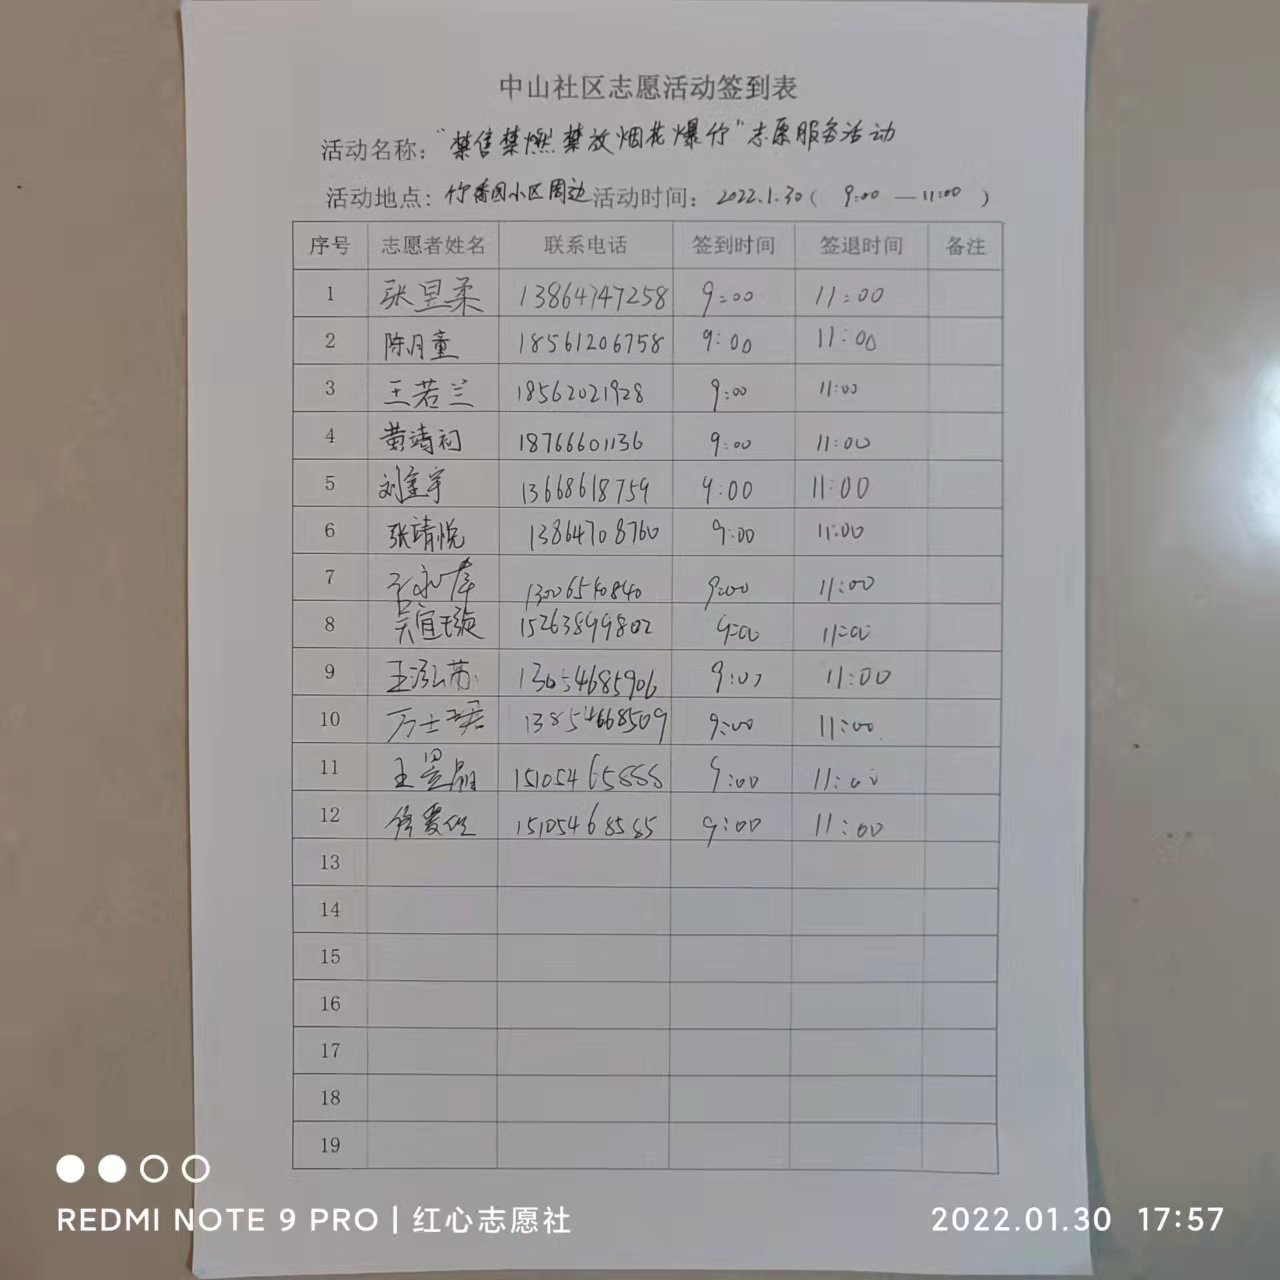 中山社区志愿活动签到表
活动名称："禁售禁燃禁放烟花爆竹"志愿服务活动
活动地点：竹香园小区周边 活动时间：2022.1.30( 9:00 — 11:00 )
序号 志愿者姓名 联系电话 签到时间 签退时间 备注
1 张昱柔 13864747258 9:00 11:00
2 陈月童 18561206758 9:00 11:00
3 王若兰 18562021928 9:00 11:00
4 黄靖祠 18766601136 9:00 11:00
5 刘奎宇 13668618759 9:00 11:00
6 张靖悦 13864708760 9:00 11:00
7 13006540840 9:00 11:00
8 吴宜璇 15263899802 9:00 11:00
9 王泓苏 13654685906 9:00 11:00
10 万士珺 13854668509 9:00 11:00
11 王昱 15105465888 9:00 11:00
12 15105468585 9:00 11:00
13
14
15
16
17
18
19
REDMI NOTE 9 PRO | 红心志愿社
2022.01.30 17:57